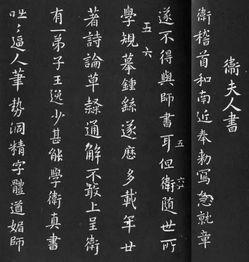 衛夫人書
衛稽首和南近奉勑寫急就章
遂不得與師書耳但衛隨世所
學規摹鍾繇遂歷多載年廿
著詩論草隸通解不敢上呈衛
有一弟子王逸少甚能學衛真書
咄咄逼人筆勢洞精字體遒媚師